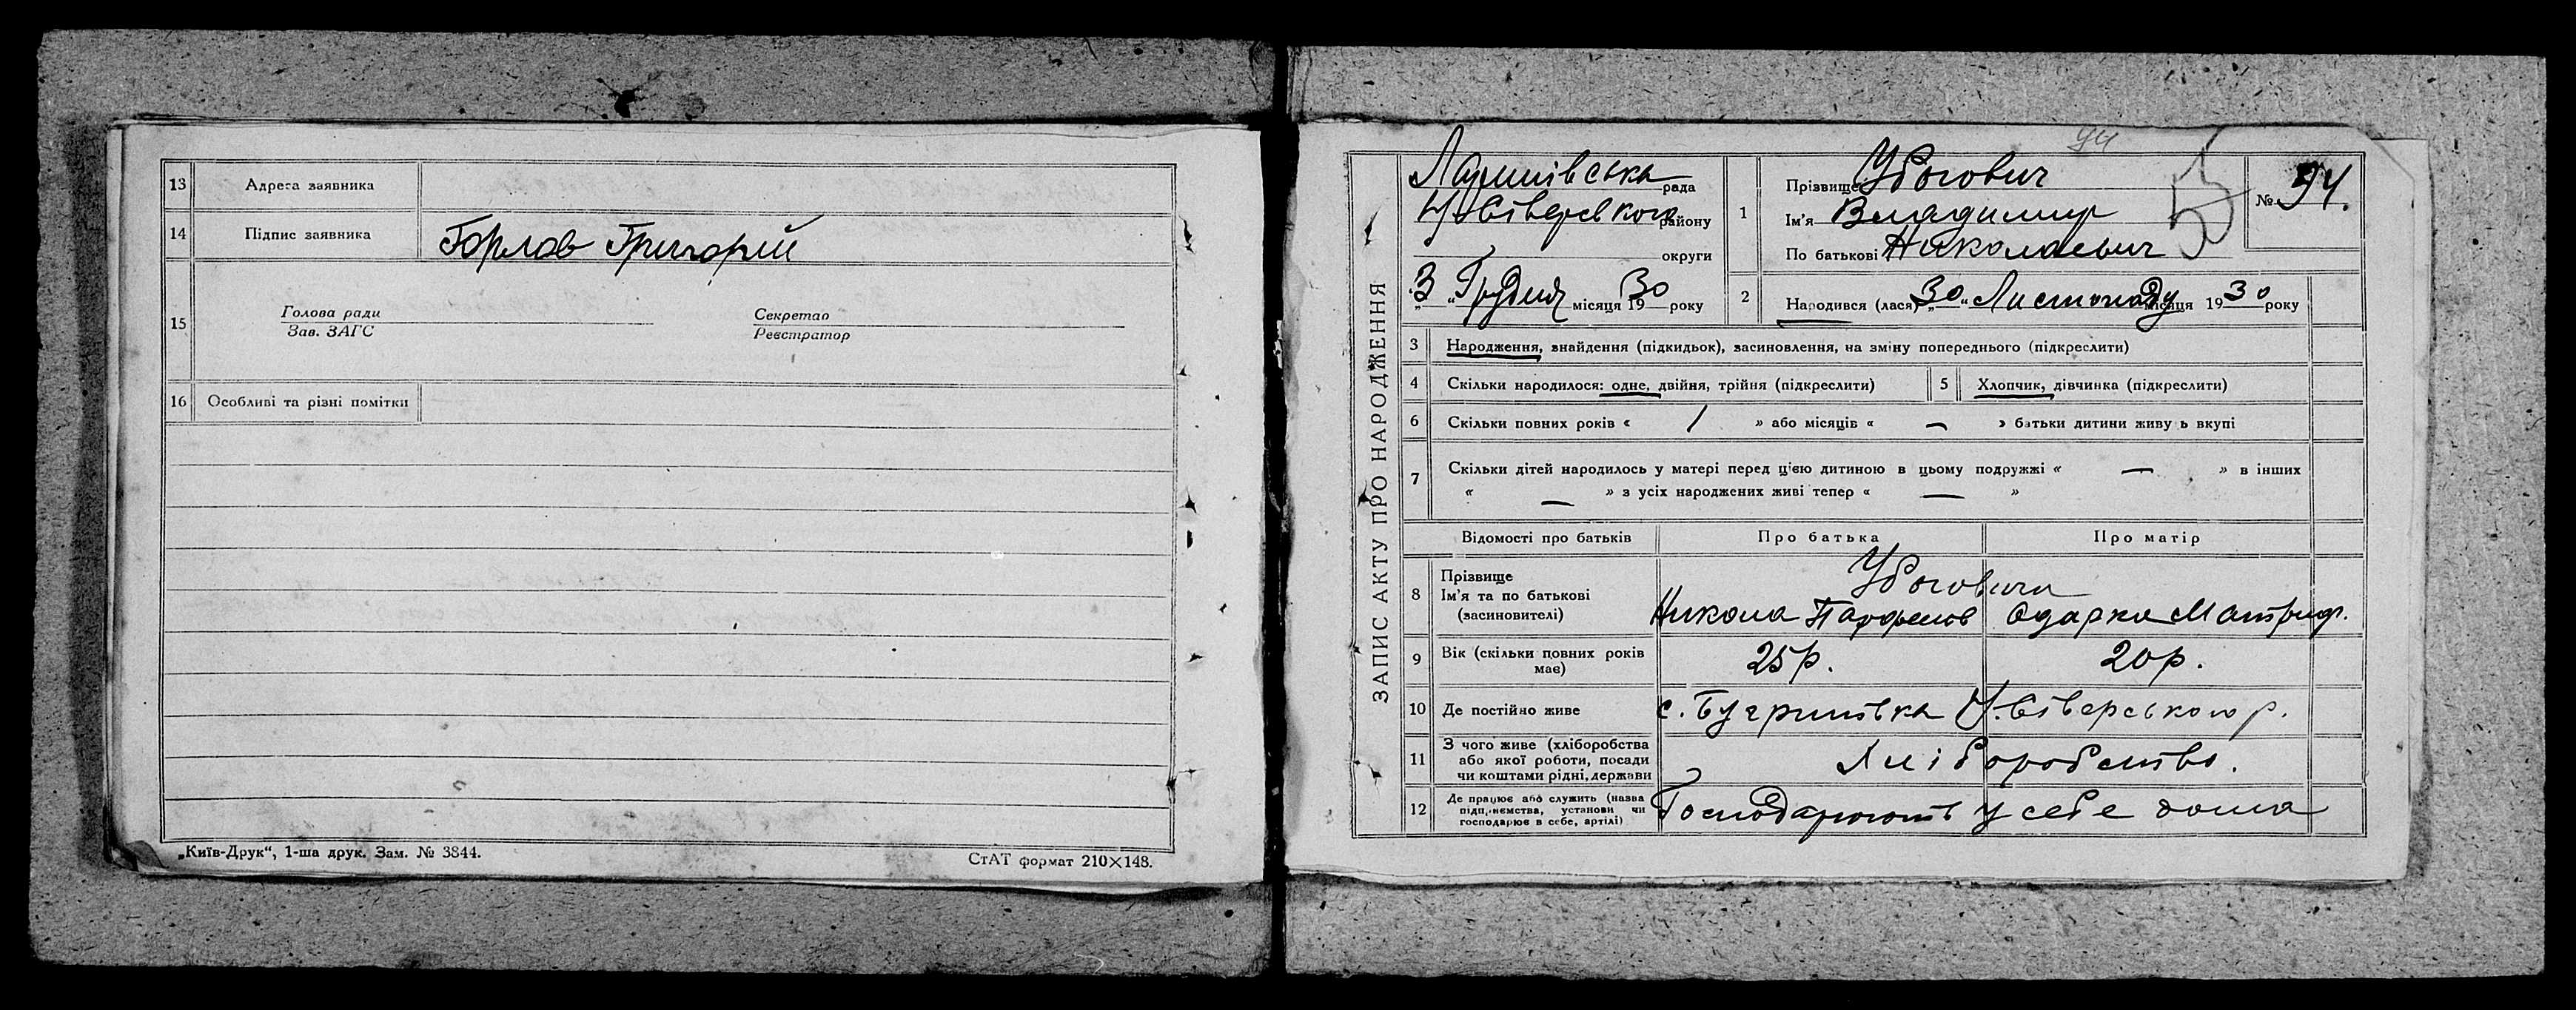 13 Адреса заявника
14 Підпис заявника Горлов Григорій
15 Голова ради Секретар
Зав. ЗАГС Реєстратор
16 Особливі та різні помітки
„Київ-Друк“, 1-ша друк. Зам. № 3844. СтАТ формат 210×148.
94
ЗАПИС АКТУ ПРО НАРОДЖЕННЯ
рада
Сіверського району
округи
„3“ Грудня місяця 1930 року
1 Прізвище Убогович
Ім'я Владимир
По батькові Николаевич
№ 94.
5
2 Народився (лася) „30“ Листопаду місяця 1930 року
3 Народження, знайдення (підкидьок), засиновлення, на зміну попереднього (підкреслити)
4 Скільки народилося: одне, двійня, трійня (підкреслити) 5 Хлопчик, дівчинка (підкреслити)
6 Скільки повних років « / » або місяців « — » батьки дитини живу ь вкупі
7 Скільки дітей народилось у матері перед цією дитиною в цьому подружжі « — » в інших
« — » з усіх народжених живі тепер « — »
Відомості про батьків Про батька Про матір
8 Прізвище
Ім'я та по батькові
(засиновителі)
Убоговичи
Никола Парфенов Одарка
9 Вік (скільки повних років має) 25 р. 20 р.
10 Де постійно живе с. Бугринівка Сіверського р.
11 З чого живе (хліборобства
або якої роботи, посади
чи коштами рідні, держави
Хліборобство.
12 Де працює або служить (назва
підприємства, установи чи
господарює в себе, артілі)
Господарюють у себе дома